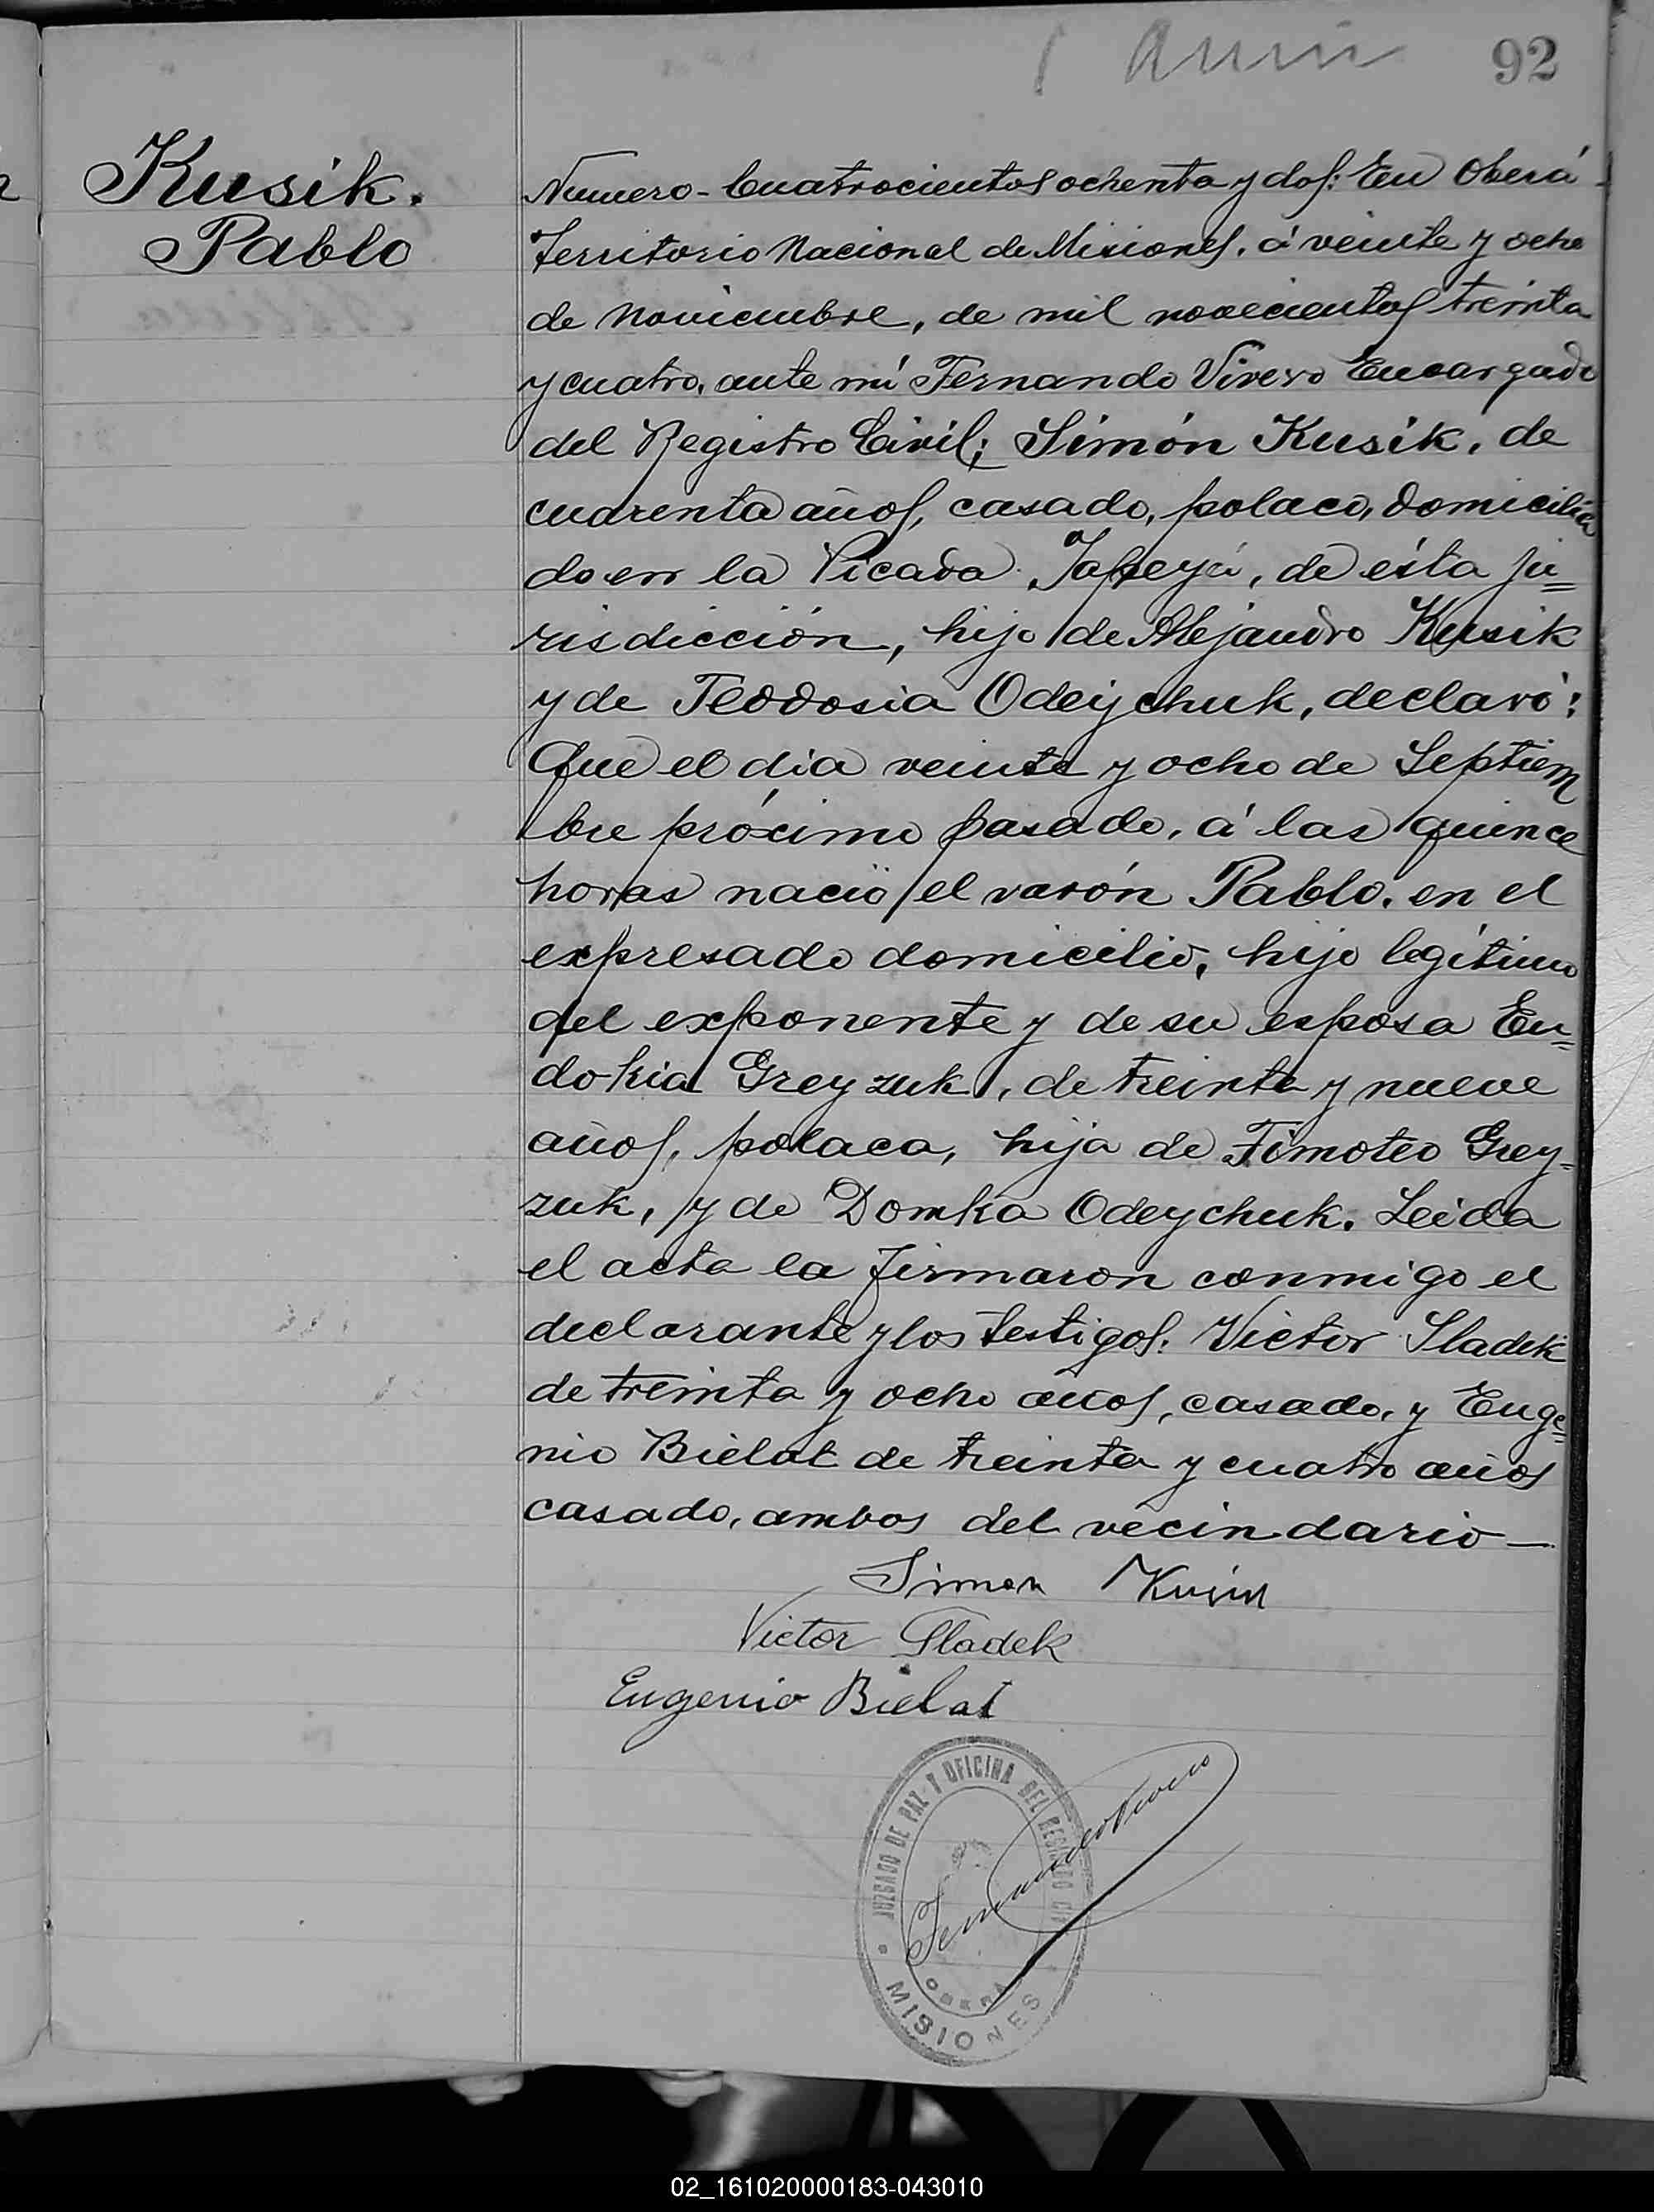 92
Kusik.
Pablo
Numero-Cuatrocientos ochenta y dos: En Oberá
Territorio Nacional de Misiones, á veinte y ocho
de Noviembre, de mil novecientos treinta
y cuatro, ante mí Fernando Vivero Encargado
del Registro Civil; Simón Kusik, de
cuarenta años, casado, polaco, domicilia
do en la Picada Yapeyú, de ésta ju=
risdicción, hijo de Alejandro Kusik
y de Teodosia Odeychuk, declaró:
Que el día veinte y ocho de Septiem
bre próximo pasado, á las quince
horas nació el varón Pablo, en el
expresado domicilio, hijo legítimo
del exponente y de su esposa Eu=
dokia Greyzuk, de treinta y nueve
años, polaca, hija de Timoteo Grey=
zuk, y de Domka Odeychuk. Leida
el acta la firmaron conmigo el
declarante y los testigos: Victor Sladek
de treinta y ocho años, casado, y Euge=
nio Bielat de treinta y cuatro años
casado, ambos del vecindario—
Simon
Victor Sladek
Eugenio Bielat
JUZGADO DE PAZ Y OFICINA DEL REGISTRO CIV
Fernando Vivero
OBERÁ
MISIONES
02_161020000183-043010